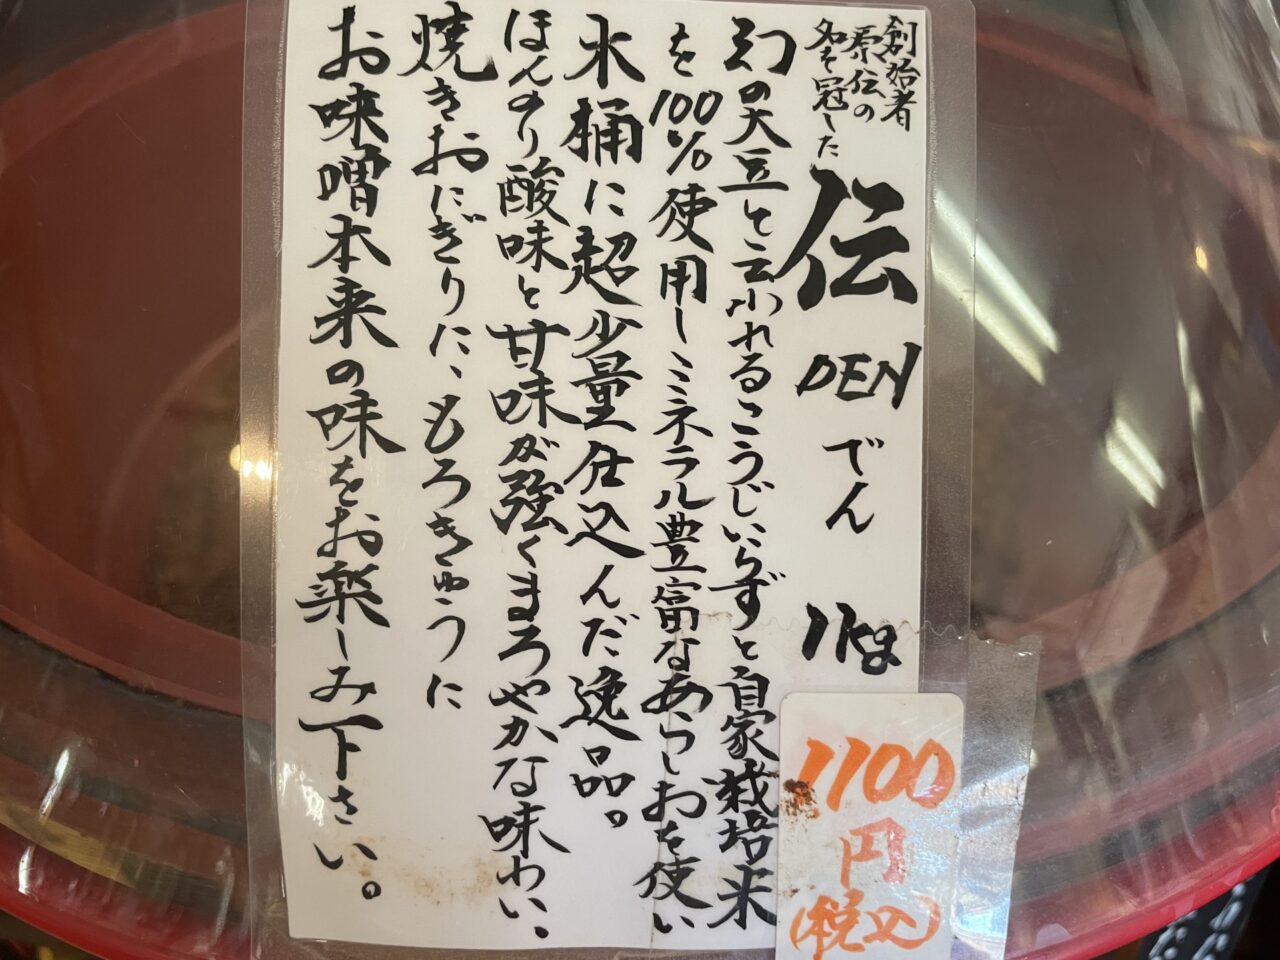 創始者
原伝の
名を冠した
伝 DEN でん 1kg
幻の大豆と云われるこうじいらずと自家栽培米
を100%使用しミネラル豊富なあらしおを使い
木桶に超少量仕込んだ逸品。
ほんのり酸味と甘味が強くまろやかな味わい、
焼きおにぎりに、もろきゅうに
お味噌本来の味をお楽しみ下さい。
1100
円
(税込)